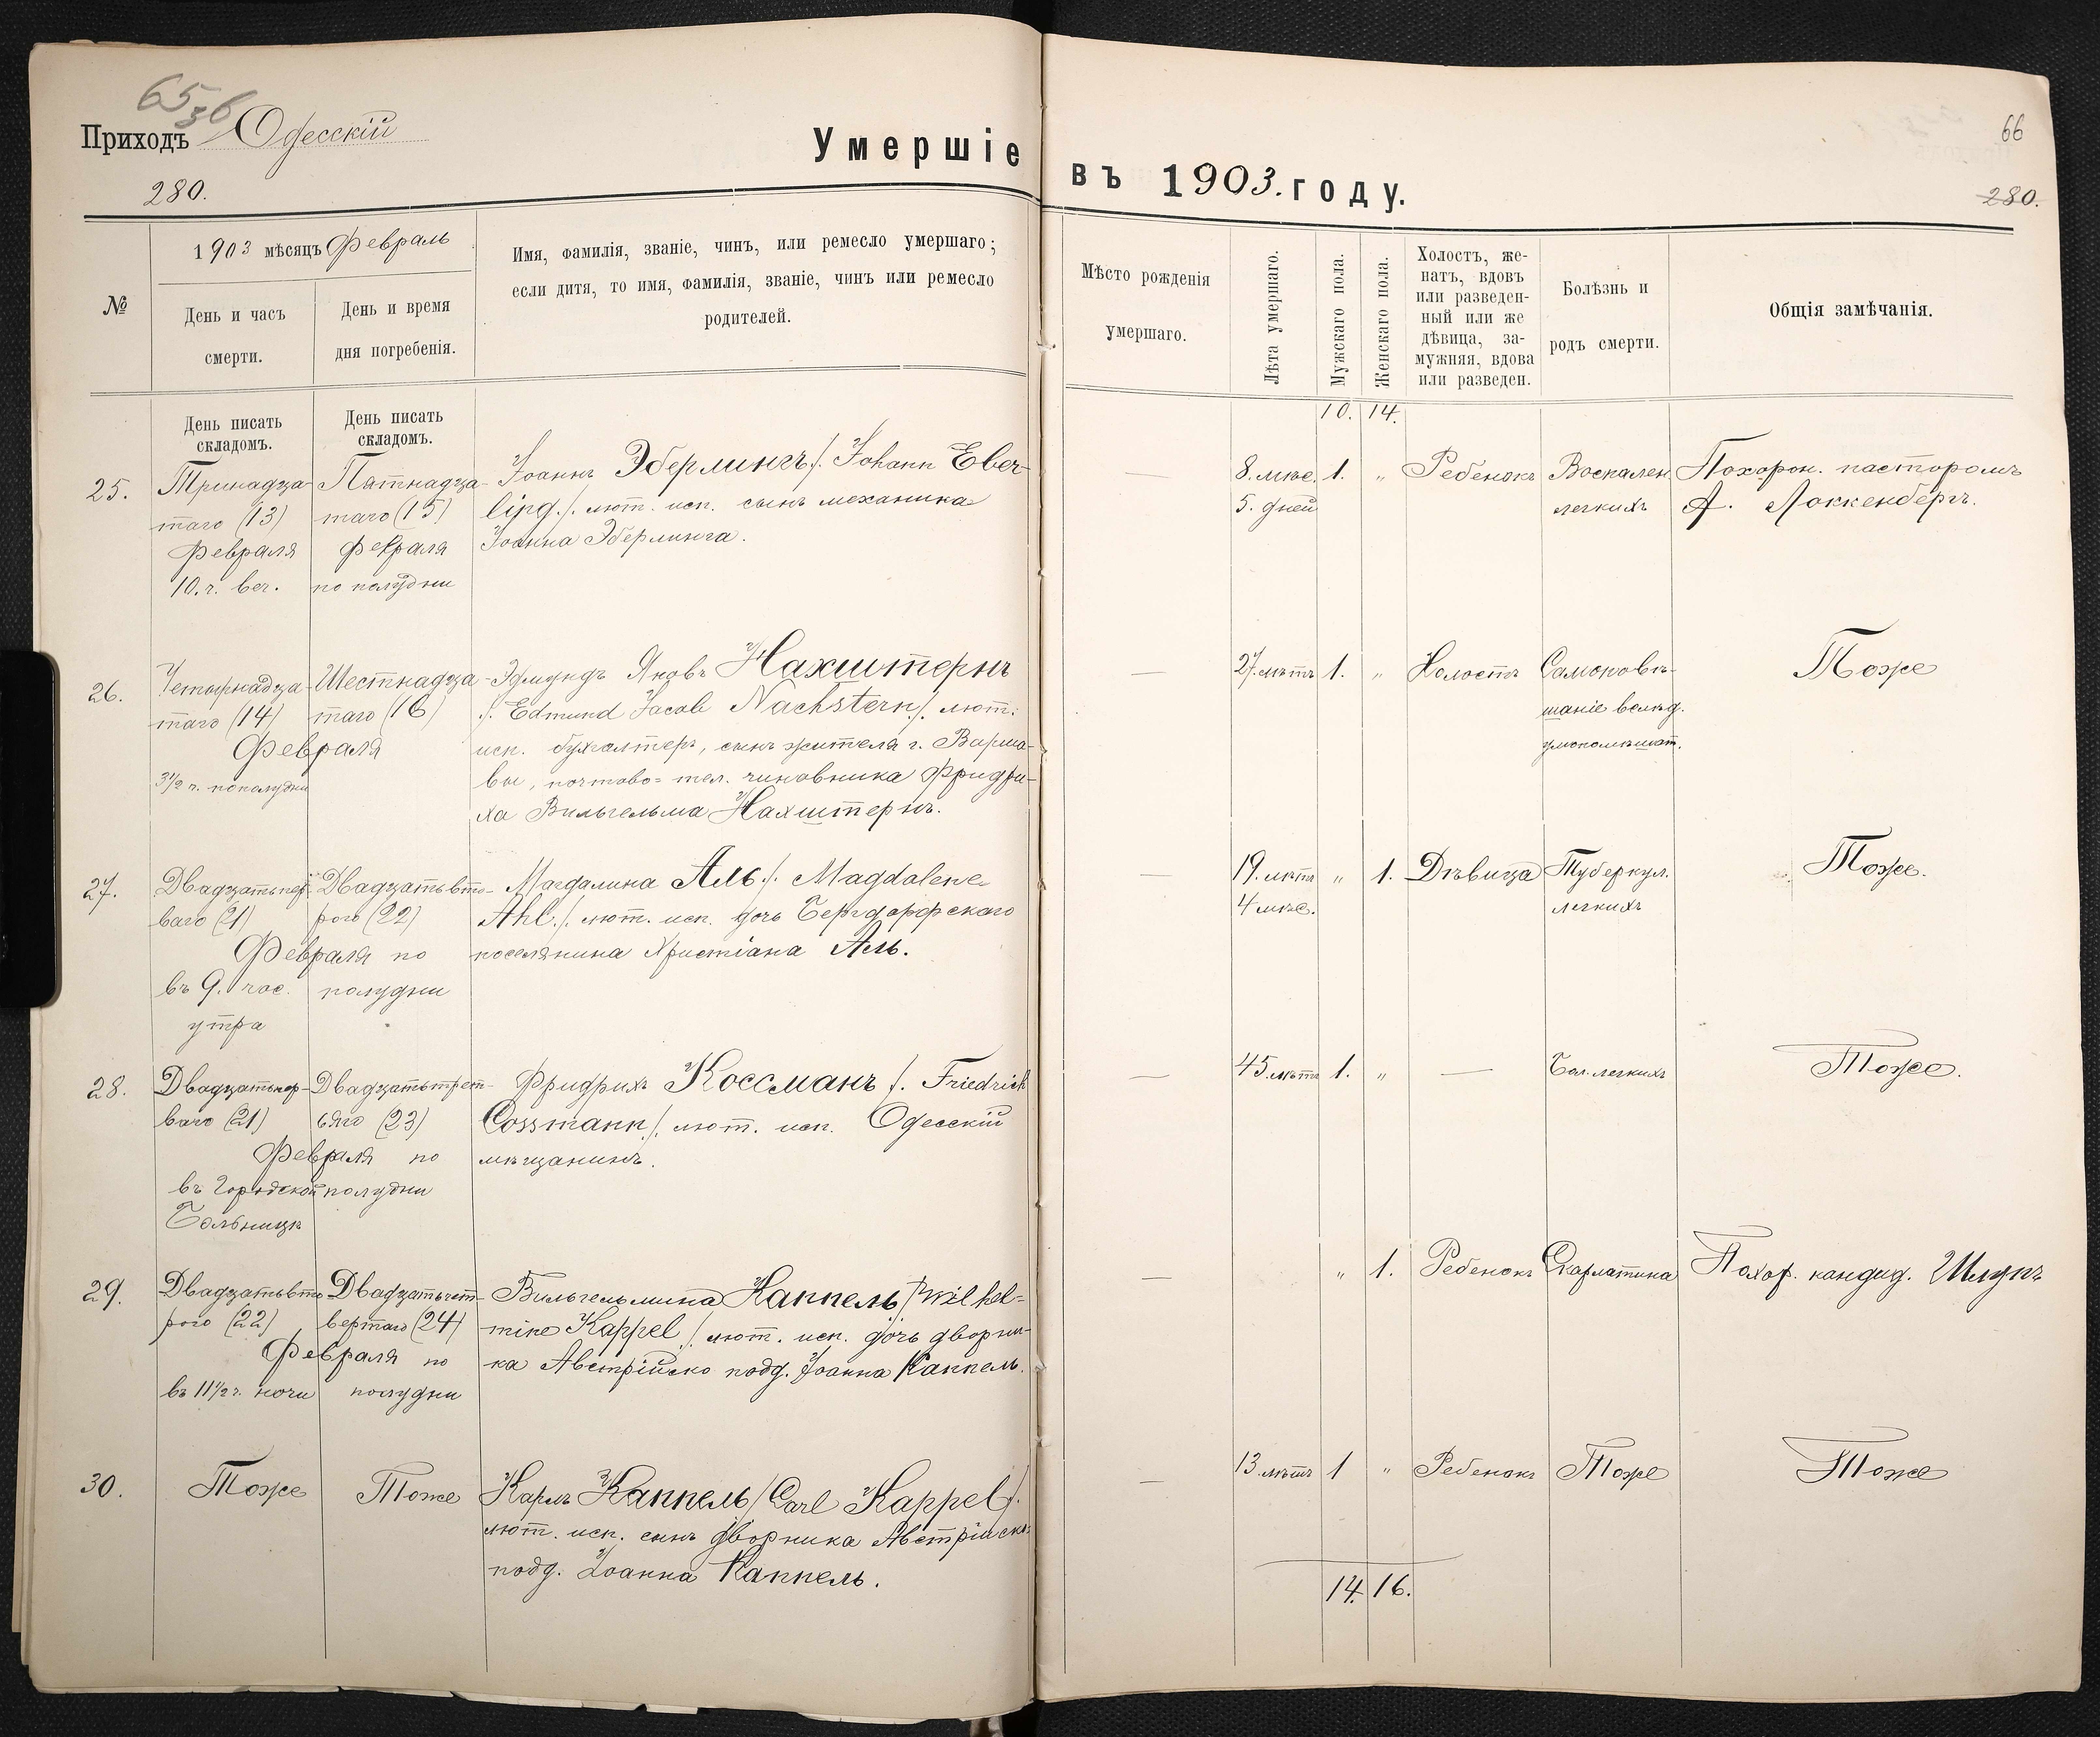 65 36
Приходъ Одесскій
280.
Умершіе
1903 мѣсяцъ Февраль
№
День и часъ
смерти.
День и время
дня погребенія.
Имя, фамилія, званіе, чинъ, или ремесло умершаго;
если дитя, то имя, фамилія, званіе, чинъ или ремесло
родителей.
День писать
складомъ.
День писать
складомъ.
25.
Тринадца-
таго (13)
Февраля
10. ч. веч.
Пятнадца-
таго (15)
Февраля
по полудни
Іоаннъ Эберлингъ /. Johann Eber-
ling ./. лют. исп. сынъ механика
Іоанна Эберлинга.
26.
Четырнадца-
таго (14)
Февраля
3½ ч. пополудни
Шестнадца-
таго (16)
Эдмундъ Яковъ Нахштернъ
/. Edmund Jacob Nachstern ./. лют.
исп. бухгалтеръ, сынъ жителя г. Варша-
вы, почтово-тел. чиновника Фридри-
ха Вильгельма Нахштернъ.
27.
Двадцатьпер-
ваго (21)
Февраля по
въ 9. час.
утра
Двадцатьвто-
рого (22)
полудни
Магдалина Аль /. Magdalene
Ahl ./. лют. исп. дочь Бергдорфскаго
поселянина Христіана Аль.
28.
Двадцатьпер-
ваго (21)
Февраля по
въ Городской
Больницѣ
Двадцатьтрет-
ьяго (23)
полудни
Фридрихъ Коссманъ /. Friedrich
Cossmann ./. лют. исп. Одесскій
мѣщанинъ.
29.
Двадцатьвто-
рого (22)
Февраля по
въ 11½ ч. ночи
Двадцатьчет-
вертаго (24)
полудни
Вильгельмина Каппель /. Wilhel-
mine Kappel ./. лют. исп. дочь дворни-
ка Австрійско подд. Іоанна Каппель.
30.
Тоже
Тоже
Карлъ Каппель /. Carl Kappel ./.
лют. исп. сынъ дворника Австрійско
подд. Іоанна Каппель.
66
въ 1903. году.
280.
Мѣсто рожденія
умершаго.
Лѣта умершаго.
Мужскаго пола.
Женскаго пола.
Холостъ, же-
натъ, вдовъ
или разведен-
ный или же
дѣвица, за-
мужняя, вдова
или разведен.
Болѣзнь и
родъ смерти.
Общія замѣчанія.
10. 14.
— 8. мѣс. 1. „ Ребенокъ Воспален. Похорон. пасторомъ
5. дней легкихъ А. Локкенбергъ.
— 27. лѣтъ 1. „ Холостъ Тоже
— 19. лѣтъ „ 1. Дѣвица Туберкул. Тоже.
4 мѣс. легкихъ
— 45. лѣтъ 1. „ — Бол. легкихъ Тоже.
— „ 1. Ребенокъ Скарлатина Похор. кандид. Шлупъ
— 13. лѣтъ 1 „ Ребенокъ Тоже Тоже
14. 16.